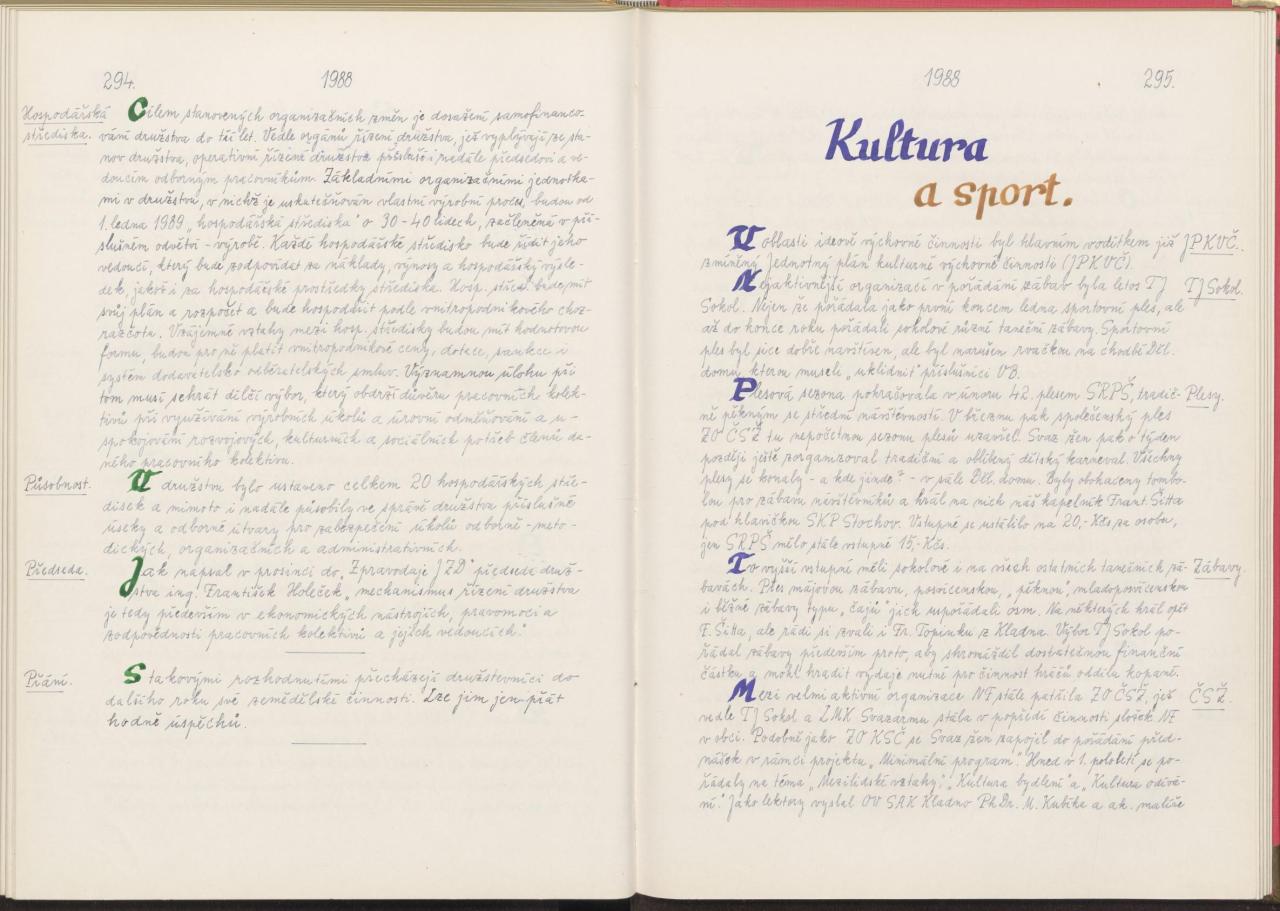 294.
1988
Hospodářská
střediska.
Cílem stanovených organizačních změn je dosažení samofinanco-
vání družstva do tří let. Vedle orgánů řízení družstva, jež vyplývají ze sta-
nov družstva, operativní řízení družstva přísluší i nadále předsedovi a ve-
doucím odborným pracovníkům. Základními organizačními jednotka-
mi v družstvu, v nichž je uskutečňován vlastní výrobní proces, budou od
1. ledna 1989 „hospodářská střediska" o 30-40 lidech, začleněná v pří-
slušném odvětví - výrobě. Každé hospodářské středisko bude řídit jeho
vedoucí, který bude zodpovídat za náklady, výnosy a hospodářský výsle-
dek, jakož i za hospodářské prostředky střediska. Hosp. střed. bude mít
svůj plán a rozpočet a bude hospodařit podle vnitropodnikového choz-
razčotu. Vzájemné vztahy mezi hosp. středisky budou mít hodnotovou
formu, budou pro ně platit vnitropodnikové ceny, dotace, sankce i
systém dodavatelsko odběratelských smluv. Významnou úlohu při
tom musí sehrát dílčí výbor, který obdrží důvěru pracovních kolek-
tivů při využívání výrobních úkolů a úrovní odměňování a u-
spokojování rozvojových, kulturních a sociálních potřeb členů da-
ného pracovního kolektivu.
Působnost.
V družstvu bylo ustaveno celkem 20 hospodářských stře-
disek a mimoto i nadále působily ve správě družstva příslušné
úseky a odborné útvary pro zabezpečení úkolů odborně-meto-
dických, organizačních a administrativních.
Předseda.
Jak napsal v prosinci do „Zpravodaje JZD" předseda druž-
stva ing. František Holeček „mechanismus řízení družstva
je tedy především v ekonomických nástrojích, pravomoci a
zodpovědnosti pracovních kolektivů a jejich vedoucích."
Přání.
S takovými rozhodnutími přecházejí družstevníci do
dalšího roku své zemědělské činnosti. Lze jim jen přát
hodně úspěchů.
1988
295.
Kultura
a sport.
V oblasti ideově výchovné činnosti byl hlavním vodítkem již
JPKVČ.
zmíněný Jednotný plán kulturně výchovné činnosti (JPKVČ).
Nejaktivnější organizací v pořádání zábav byla letos TJ
TJ Sokol.
Sokol. Nejen že pořádala jako první koncem ledna sportovní ples, ale
až do konce roku pořádali sokolové různé taneční zábavy. Sportovní
ples byl sice dobře navštíven, ale byl narušen rvačkou na chodbě Děl.
domu, kterou museli „uklidnit" příslušníci VB.
Plesová sezona pokračovala v únoru 42. plesem SRPŠ, tradič-
Plesy.
ně pěkným se střední návštěvností. V březnu pak společenský ples
ZO ČSŽ tu nepočetnou sezonu plesů uzavřel. Svaz žen pak o týden
později ještě zorganizoval tradiční a oblíbený dětský karneval. Všechny
plesy se konaly - a kde jinde? - v sále Děl. domu. Byly obohaceny tombo-
lou pro zábavu návštěvníků a hrál na nich náš kapelník Frant. Šitta
pod hlavičkou SKP Stochov. Vstupné se ustálilo na 20,- Kčs za osobu,
jen SRPŠ mělo stále vstupné 15,- Kčs.
To vyšší vstupné měli sokolové i na všech ostatních tanečních zá-
Zábavy.
bavách. Přes májovou zábavu, posvícenskou, „pěknou", mladoposvícenskou
i běžné zábavy typu „čajů" jich uspořádali osm. Na některých hrál opět
F. Šitta, ale rádi si zvali i Fr. Topinku z Kladna. Výbor TJ Sokol po-
řádal zábavy především proto, aby shromáždil dostatečnou finanční
částku a mohl hradit výdaje nutné pro činnost hráčů oddílu kopané.
Mezi velmi aktivní organizace NF stále patřila ZO ČSŽ, jež
ČSŽ.
vedle TJ Sokol a LMK Svazarmu stála v popředí činnosti složek NF
v obci. Podobně jako ZO KSČ se Svaz žen zapojil do pořádání před-
nášek v rámci projektu „Minimální program". Hned v 1. pololetí se po-
řádaly na téma „Mezilidské vztahy", „Kultura bydlení" a „Kultura odívá-
ní". Jako lektory vyslal OV SAK Kladno PhDr. M. Kubíka a ak. malíře